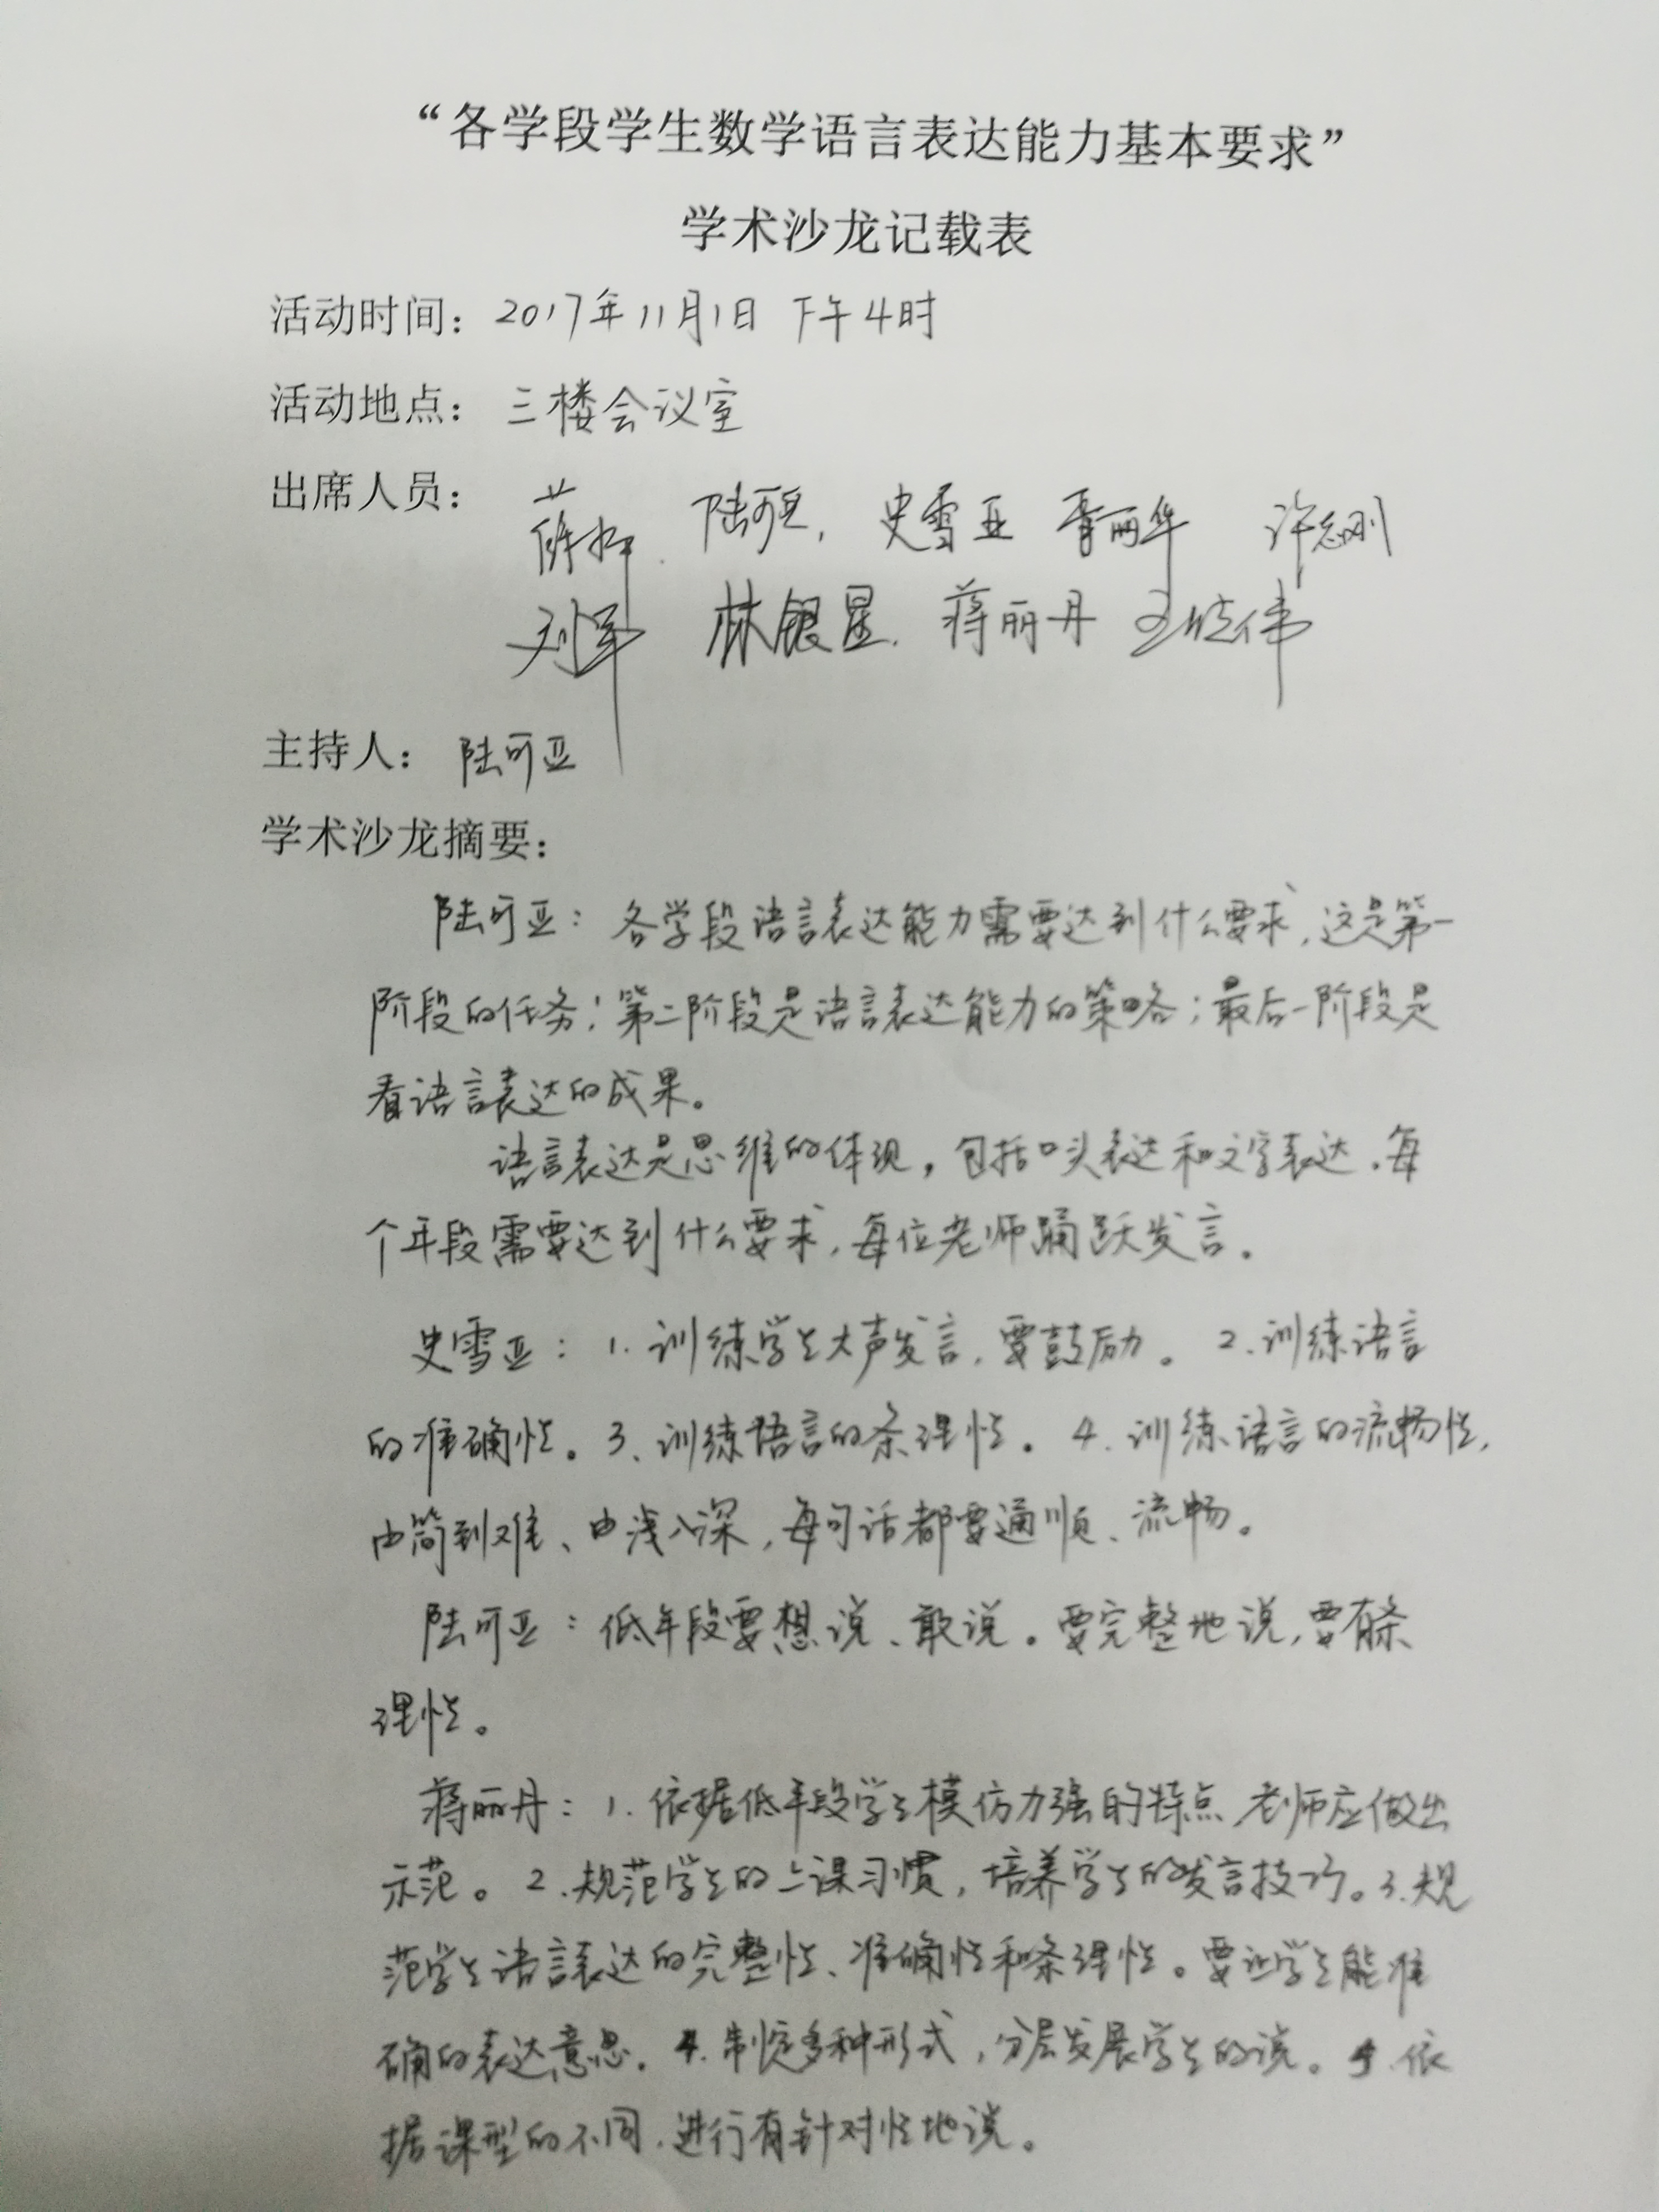 “各学段学生数学语言表达能力基本要求”
学术沙龙记载表
活动时间：2017年11月1日 下午4时
活动地点：三楼会议室
出席人员：薛 陆可亚，史雪亚 胥丽华 许志刚
刘军 林银星．蒋丽丹 王晓伟
主持人：陆可亚
学术沙龙摘要：
陆可亚：各学段语言表达能力需要达到什么要求，这是第一
阶段的任务；第二阶段是语言表达能力的策略；最后一阶段是
看语言表达的成果。
语言表达是思维的体现，包括口头表达和文字表达，每
个年段需要达到什么要求，每位老师踊跃发言。
史雪亚：1．训练学生大声发言，要鼓励。 2．训练语言
的准确性。3、训练语言的条理性。 4．训练语言的流畅性，
由简到难、由浅入深，每句话都要通顺、流畅。
陆可亚：低年段要想说、敢说。要完整地说，要有条
理性。
蒋丽丹：1．依据低年段学生模仿力强的特点，老师应做出
示范。2．规范学生的上课习惯，培养学生的发言技巧。3．规
范学生语言表达的完整性、准确性和条理性。要让学生能准
确的表达意思。4．制定多种形式，分层发展学生的说。5．依
据课型的不同，进行有针对性地说。